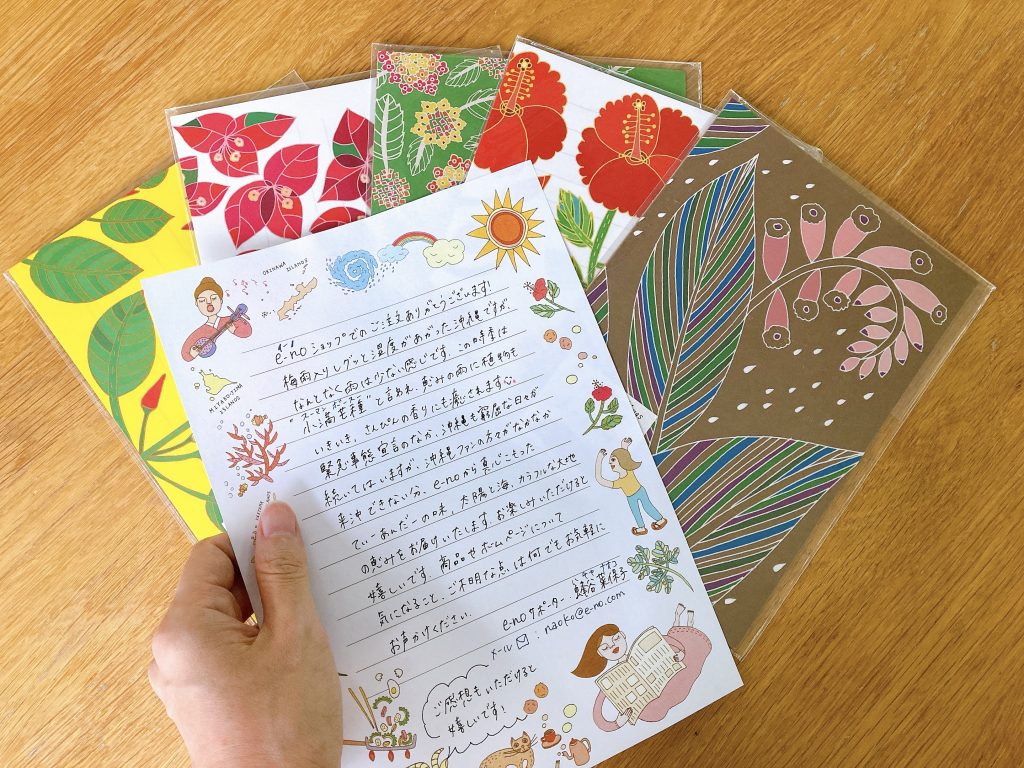 OKINAWA ISLANDS
MIYAKOJIMA ISLANDS
e-noショップでのご注文ありがとうございます!
梅雨入りしグッと湿度があがった沖縄ですが、
なんとなく雨は少ない感じです。この時季は
スーマンボースー
"小満芒種"と言われ、恵みの雨に植物も
いきいき、さんぴんの香りにも癒されます
緊急事態宣言のなか、沖縄も窮屈な日々が
続いてはいますが、沖縄ファンの方々がなかなか
来沖できない分、e-noから真心こもった
てぃーあんだーの味、太陽と海、カラフルな大地
の恵みをお届けいたします。お楽しみいただけると
嬉しいです。商品やホームページについて
気になること、ご不明な点は何でもお気軽に
お声かけください。
e-noサポーター:谷菜保子
メール:naoko@e-no.com
ご感想もいただけると
嬉しいです!